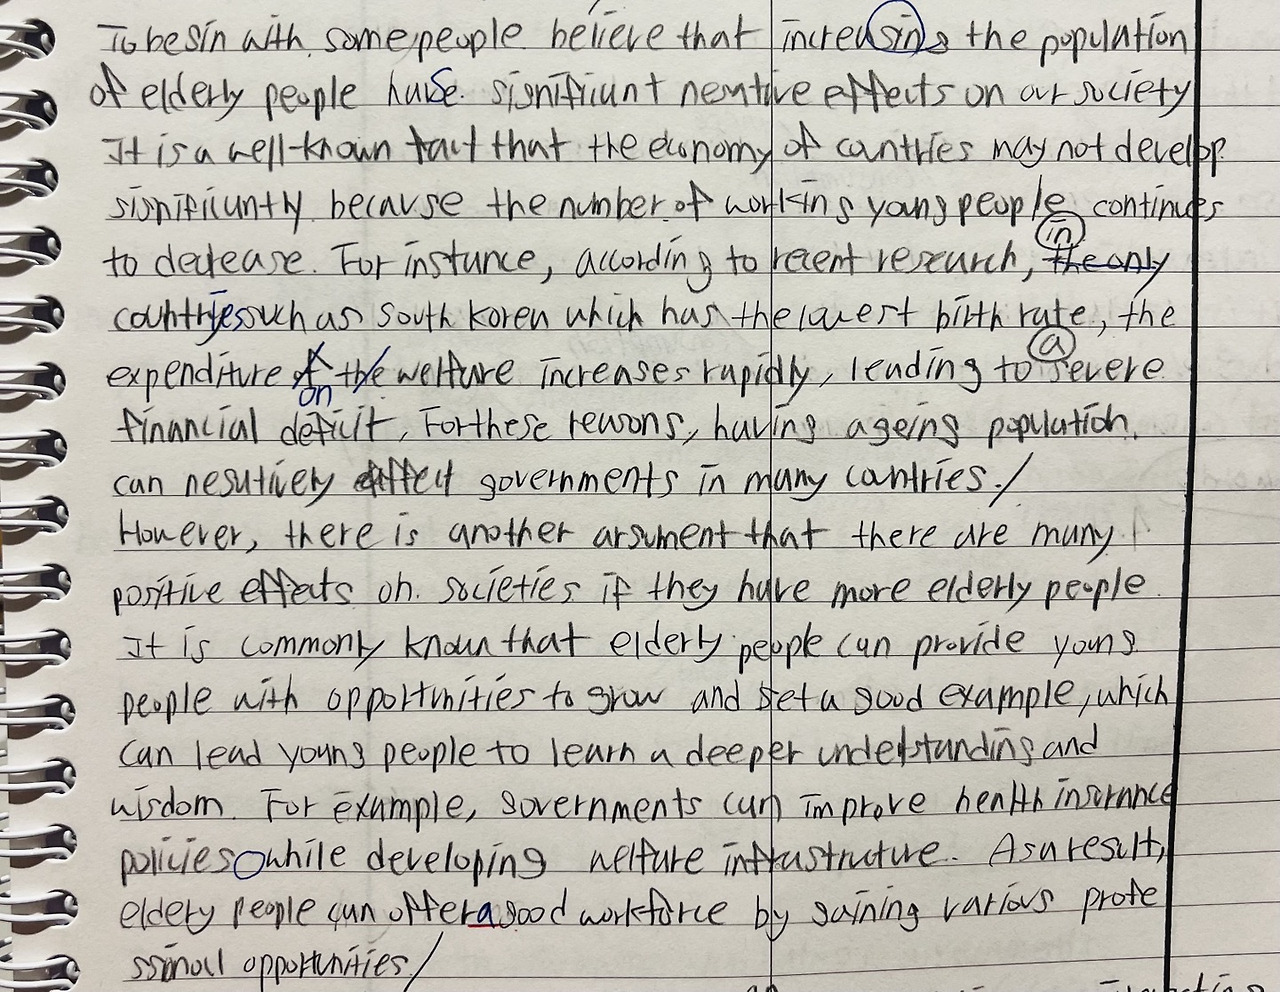 To begin with, some people believe that increasing the population
of elderly people have significant negative effects on our society
It is a well-known fact that the economy of countries may not develop
significantly because the number of working young people continues
to decrease. For instance, according to recent research, in the only
countries such as South Korea which has the lowest birth rate, the
expenditure of on the welfare increases rapidly, leading to a severe
financial deficit. For these reasons, having ageing population
can negatively effect governments in many countries.
However, there is another argument that there are many
positive effects on societies if they have more elderly people
It is commonly known that elderly people can provide young
people with opportunities to grow and set a good example, which
can lead young people to learn a deeper understanding and
wisdom. For example, governments can improve health insurance
policies while developing welfare infrastructure. As a result,
eldery people can offer a good workforce by gaining various profe
ssional opportunities